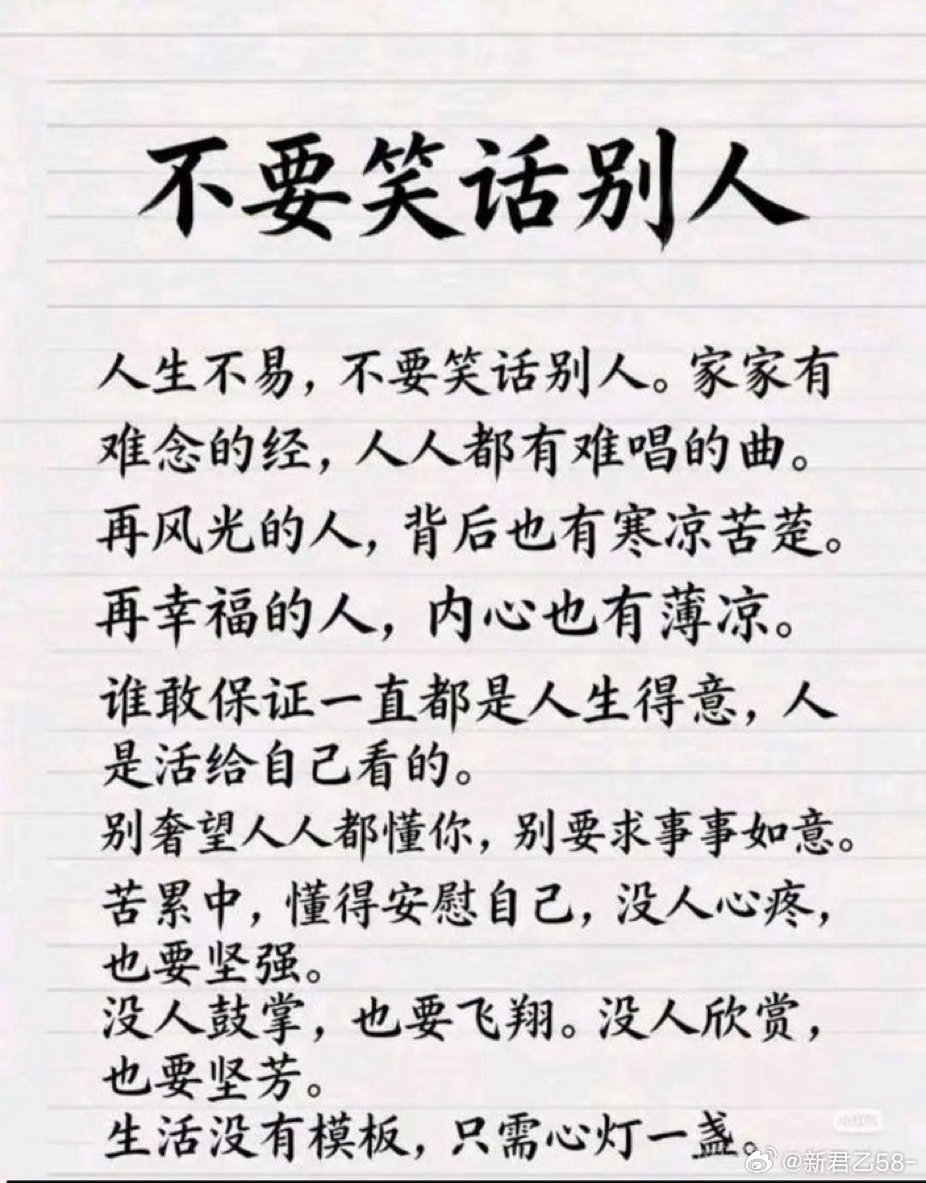 不要笑话别人
人生不易，不要笑话别人。家家有
难念的经，人人都有难唱的曲。
再风光的人，背后也有寒凉苦茬。
再幸福的人，内心也有薄凉。
谁敢保证一直都是人生得意，人
是活给自己看的。
别奢望人人都懂你，别要求事事如意。
苦累中，懂得安慰自己，没人心疼，
也要坚强。
没人鼓掌，也要飞翔。没人欣赏，
也要坚芳。
生活没有模板，只需心灯一盏。
小红书
@新君乙58-